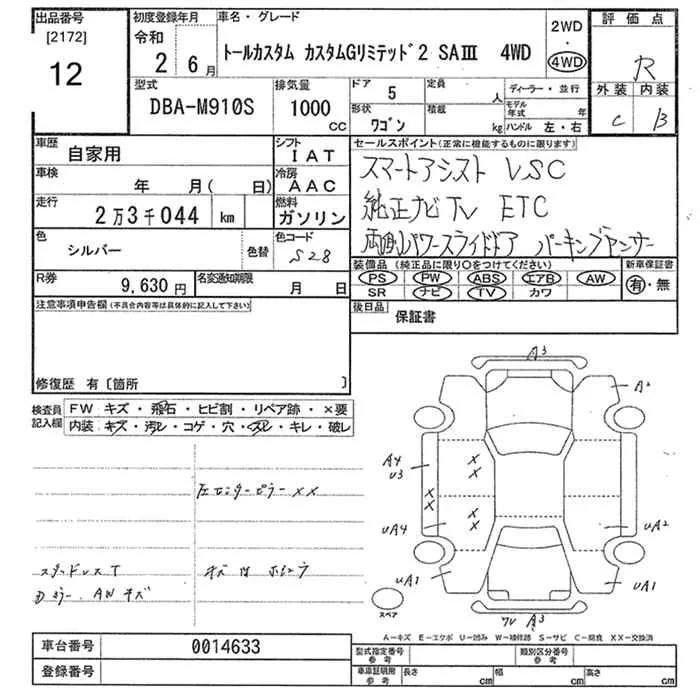 出品番号
[2172]
12
初度登録年月
令和
2年 6月
車名・グレード
トールカスタム カスタムGリミテッド2 SAⅢ 4WD
2WD
・
4WD
評価点
R
外装 内装
C B
型式
DBA-M910S
排気量
1000
CC
ドア
5
定員
人
形状
ワゴン
積載
kg
ディーラー・並行
モデル年式
年
ハンドル 左・右
車歴
自家用
シフト
IAT
車検
年 月( 日)
冷房
AAC
走行
2万3千044 km
燃料
ガソリン
色
シルバー
色替
色コード
S28
R券
9,630円
名変通知期限
月 日
セールスポイント(正常に機能するものに限ります)
スマートアシスト VSC
純正ナビTV ETC
両側パワースライドドア パーキングセンサー
装備品 (純正品に限り○をつけてください)
新車保証書
PS PW ABS エアB AW
有・無
SR ナビ TV カワ
後日品
保証書
注意事項申告欄(不具合内容等は具体的に記入して下さい)
修復歴 有〔箇所 〕
検査員記入欄
FW キズ・飛石・ヒビ割・リペア跡・×要
内装 キズ・汚レ・コゲ・穴・スレ・キレ・破レ
左センターピラー XX
スタッドレスT
AW キズ
A3
A2
A4
U3
X
X
X
X
UA4
X
X
UA2
UA1
UA1
スペア
A3
A-キズ E-エクボ U-凹み W-補修跡 S-サビ C-腐食 XX-交換済
車台番号
0014633
登録番号
型式指定番号
参考
類別区分番号
参考
車庫証明用
参考
長さ
cm
幅
cm
高さ
cm